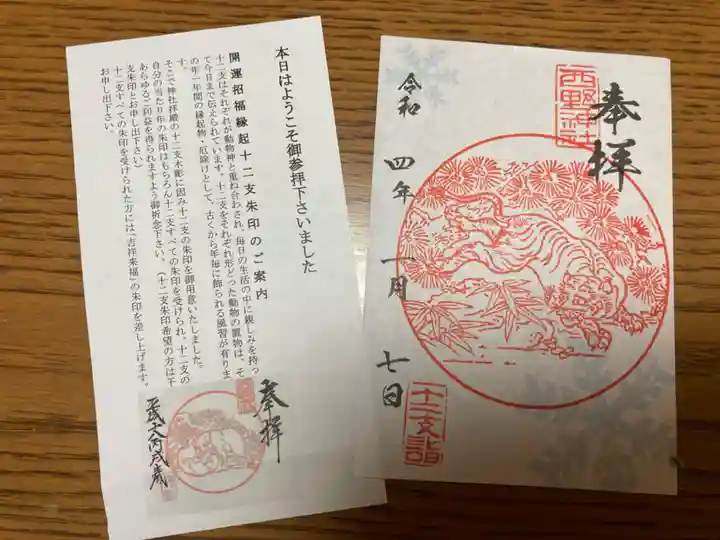 本日はようこそ御参拝下さいました
開運招福縁起十二支朱印のご案内
十二支はそれぞれが動物神と重ね合わされ、毎日の生活の中に親しみを持っ
て今日まで伝えられています。十二支をそれぞれ形どった動物の置物は、そ
の年一年間の縁起物・厄除けとして、古くから年毎に飾られる風習が有りま
す。
そこで神社拝殿の十二支木彫に因み十二支の朱印を御用意いたしました。
自分の当たり年の朱印はもちろん十二支すべての朱印を受けられ、十二支の
あらゆるご利益を得られますよう御祈念下さい。(十二支朱印希望の方は干
支朱印とお申し出下さい)
十二支すべての朱印を受けられた方には「吉祥来福」の朱印を差し上げます。
お申し出下さい。
奉拝
奉拝
西野神社
令和四年一月七日
十二支詣